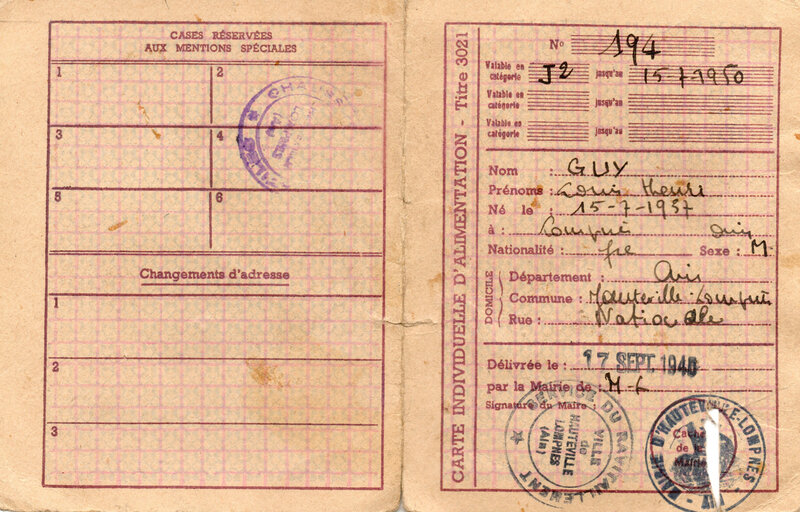 CASES RÉSERVÉES
AUX MENTIONS SPÉCIALES
1
2
3
4
5
6
Changements d'adresse
1
2
3
CARTE INDIVIDUELLE D'ALIMENTATION - Titre 3021
No 194
Valable en catégorie J2 jusqu'au 15-7-1950
Valable en catégorie jusqu'au
Valable en catégorie jusqu'au
Nom : GUY
Prénoms : Louis Henri
Né le : 15-7-1937
à : Lompnes Ain
Nationalité : fse Sexe : M.
DOMICILE
Département : Ain
Commune : Hauteville-Lompnes
Rue : Nationale
Délivrée le : 17 SEPT. 194
par la Mairie de : H-L
Signature du Maire :
SERVICE DU RAVITAILLEMENT
VILLE
de
HAUTEVILLE
LOMPNES
(Ain)
MAIRIE D'HAUTEVILLE-LOMPNES
Cachet
de la
Mairie